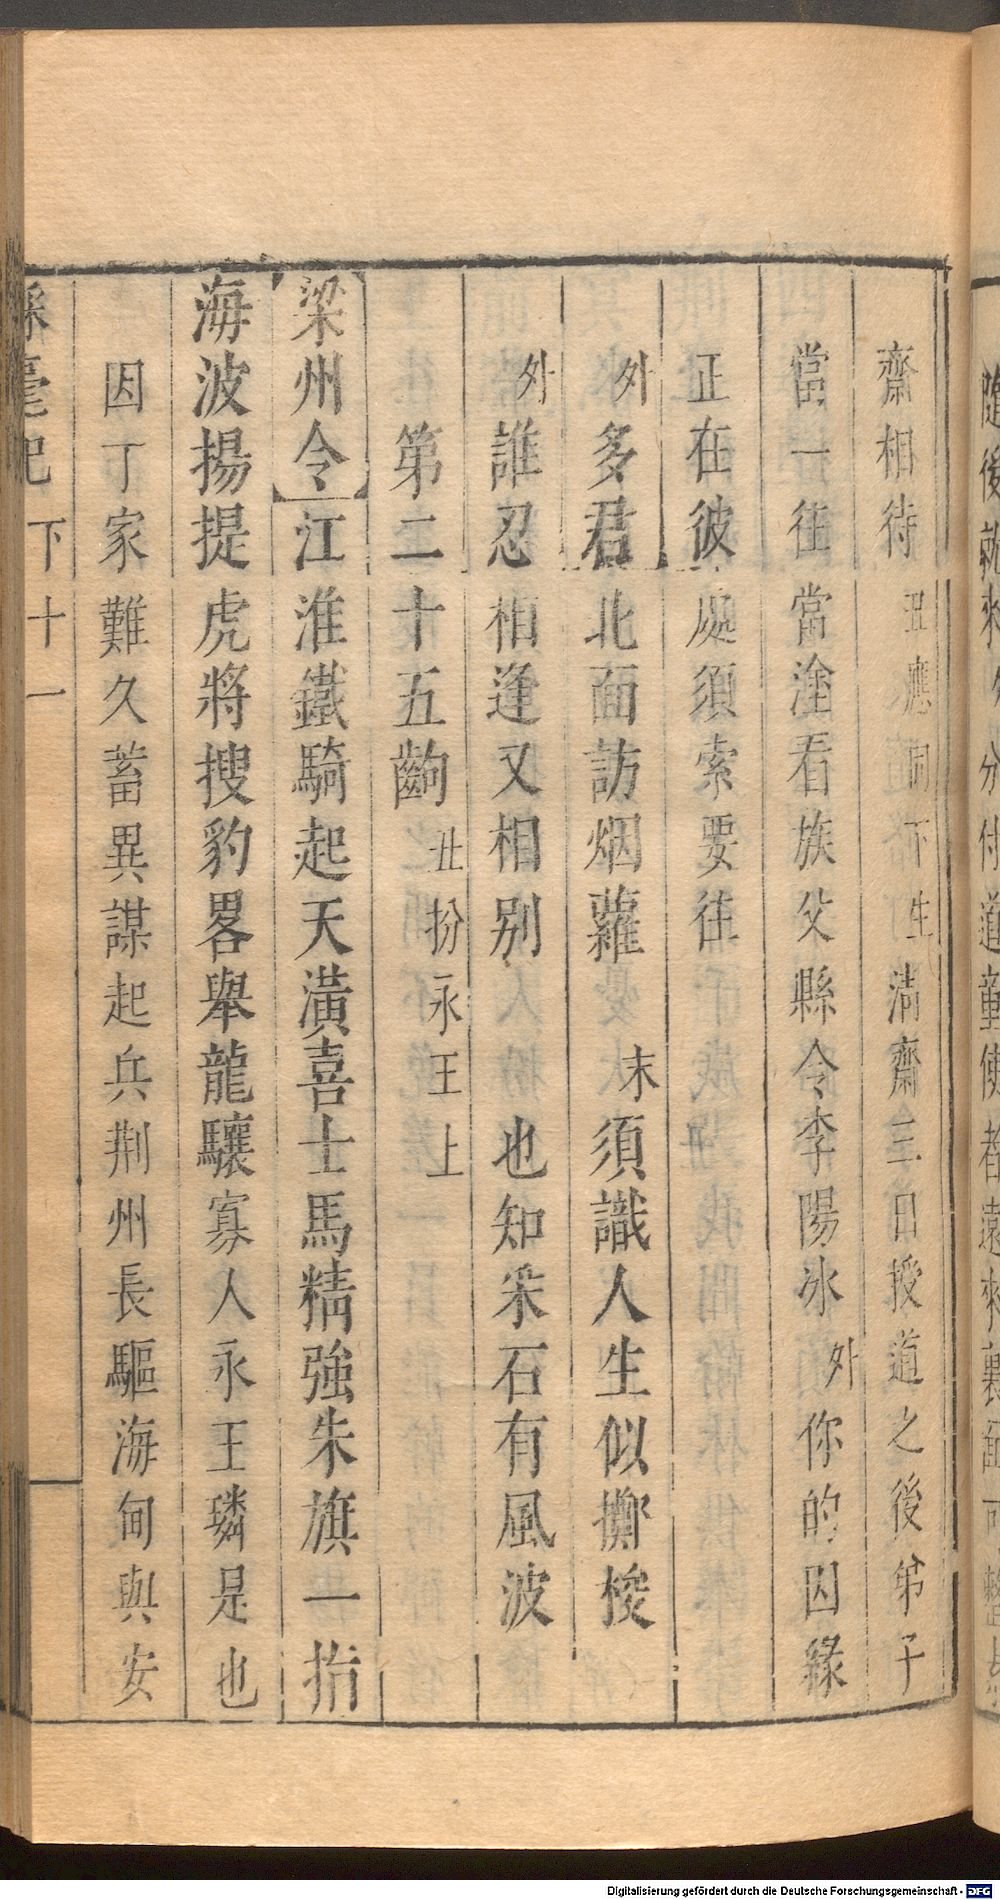 齋相待丑應同下生淸齋三日授道之後弟子
當一往當塗看族父縣令李陽冰外你的因緣
正在彼處須索要往
外多君北面訪烟蘿末須識人生似擲梭
外誰忍相逢又相别也知采石有風波
第二十五齣丑扮永王上
梁州令江淮鐵騎起天潢喜士馬精強朱旗一指
海波揚提虎將搜豹畧舉龍驤寡人永王璘是也
因丁家難久蓄異謀起兵荆州長驅海甸與安
綵毫記下十一
Digitalisierung gefördert durch die Deutsche Forschungsgemeinschaft - DFG